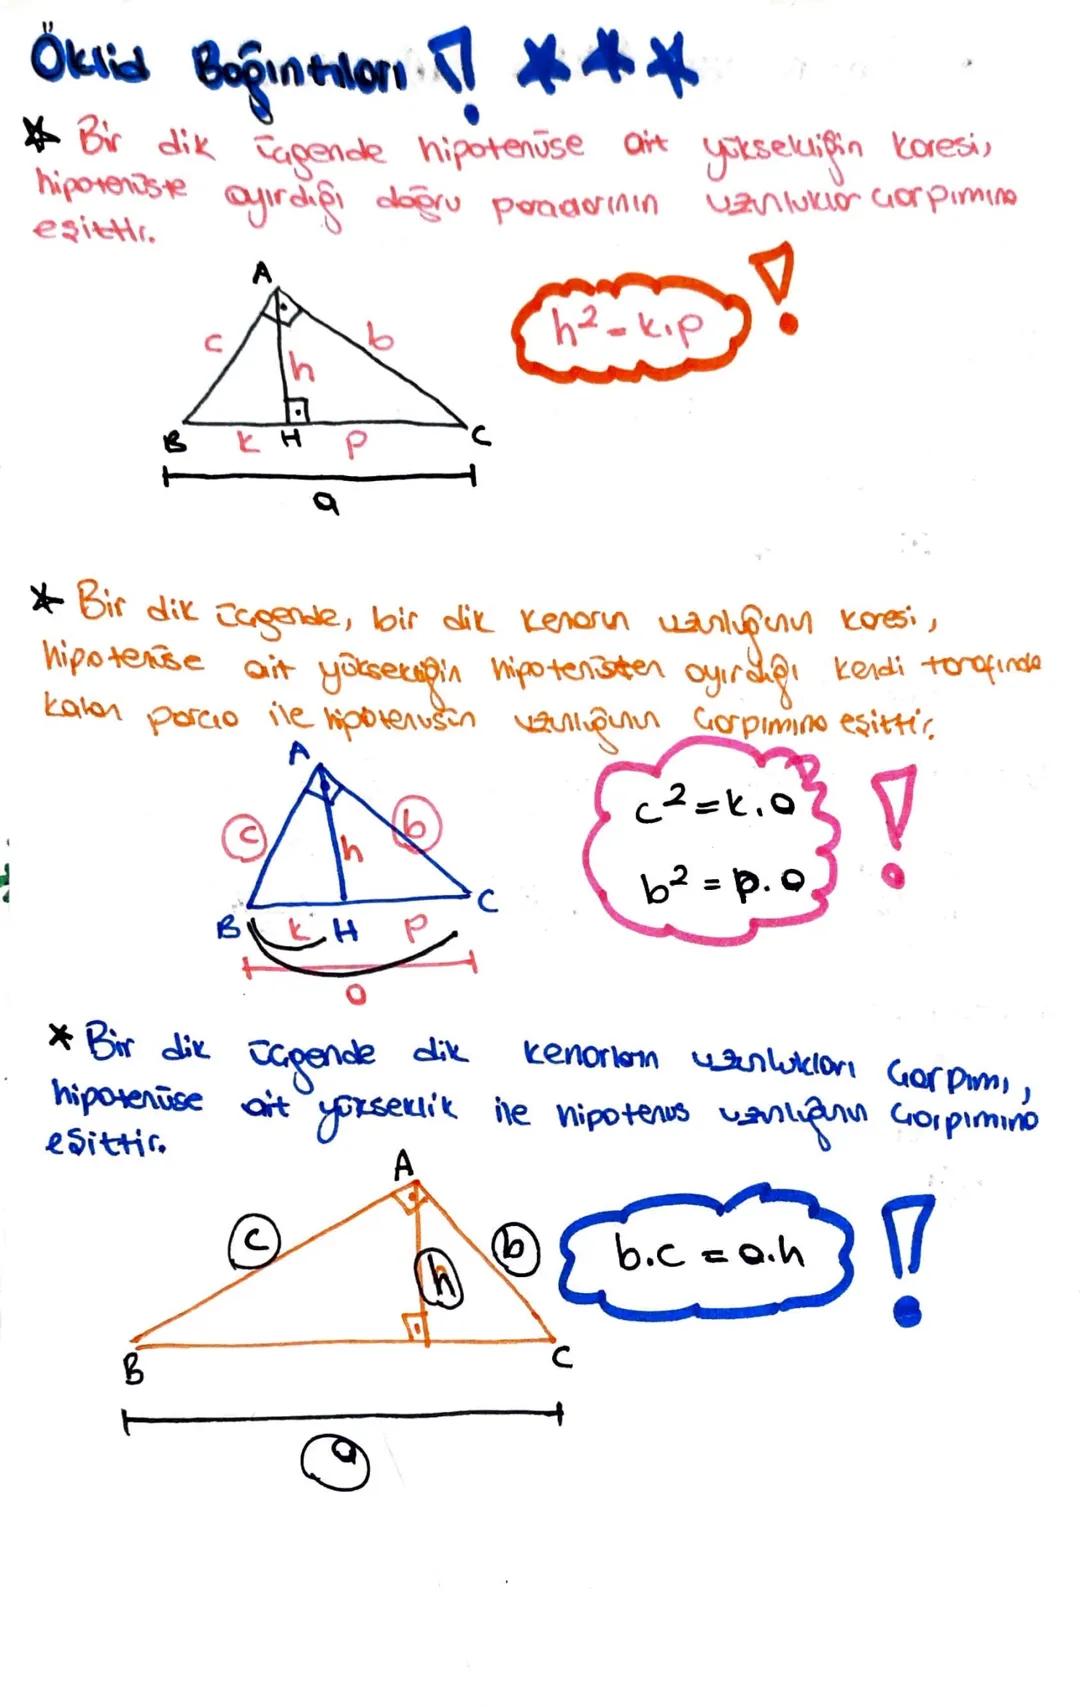 Öklid Bağıntıları !
* Bir dik üçgende hipotenüse ait yüksekliğin karesi,
hipotenüste ayırdığı doğru parçalarının uzunluklar çarpımına
eşittir.
A
c
b
h
B
k
H
p
C
a
h² = k.p !
* Bir dik üçgende, bir dik kenarın uzunluğunun karesi,
hipotenüse ait yüksekliğin hipotenüsten ayırdığı kendi tarafında
kalan parça ile hipotenüsün uzunluğunun çarpımına eşittir.
A
c
b
h
B
k
H
p
C
a
c² = k.a
b² = p.a !
* Bir dik üçgende dik kenarların uzunlukları çarpımı,
hipotenüse ait yükseklik ile hipotenüs uzunluğunun çarpımına
eşittir.
A
c
b
h
B
C
a
b.c = a.h !